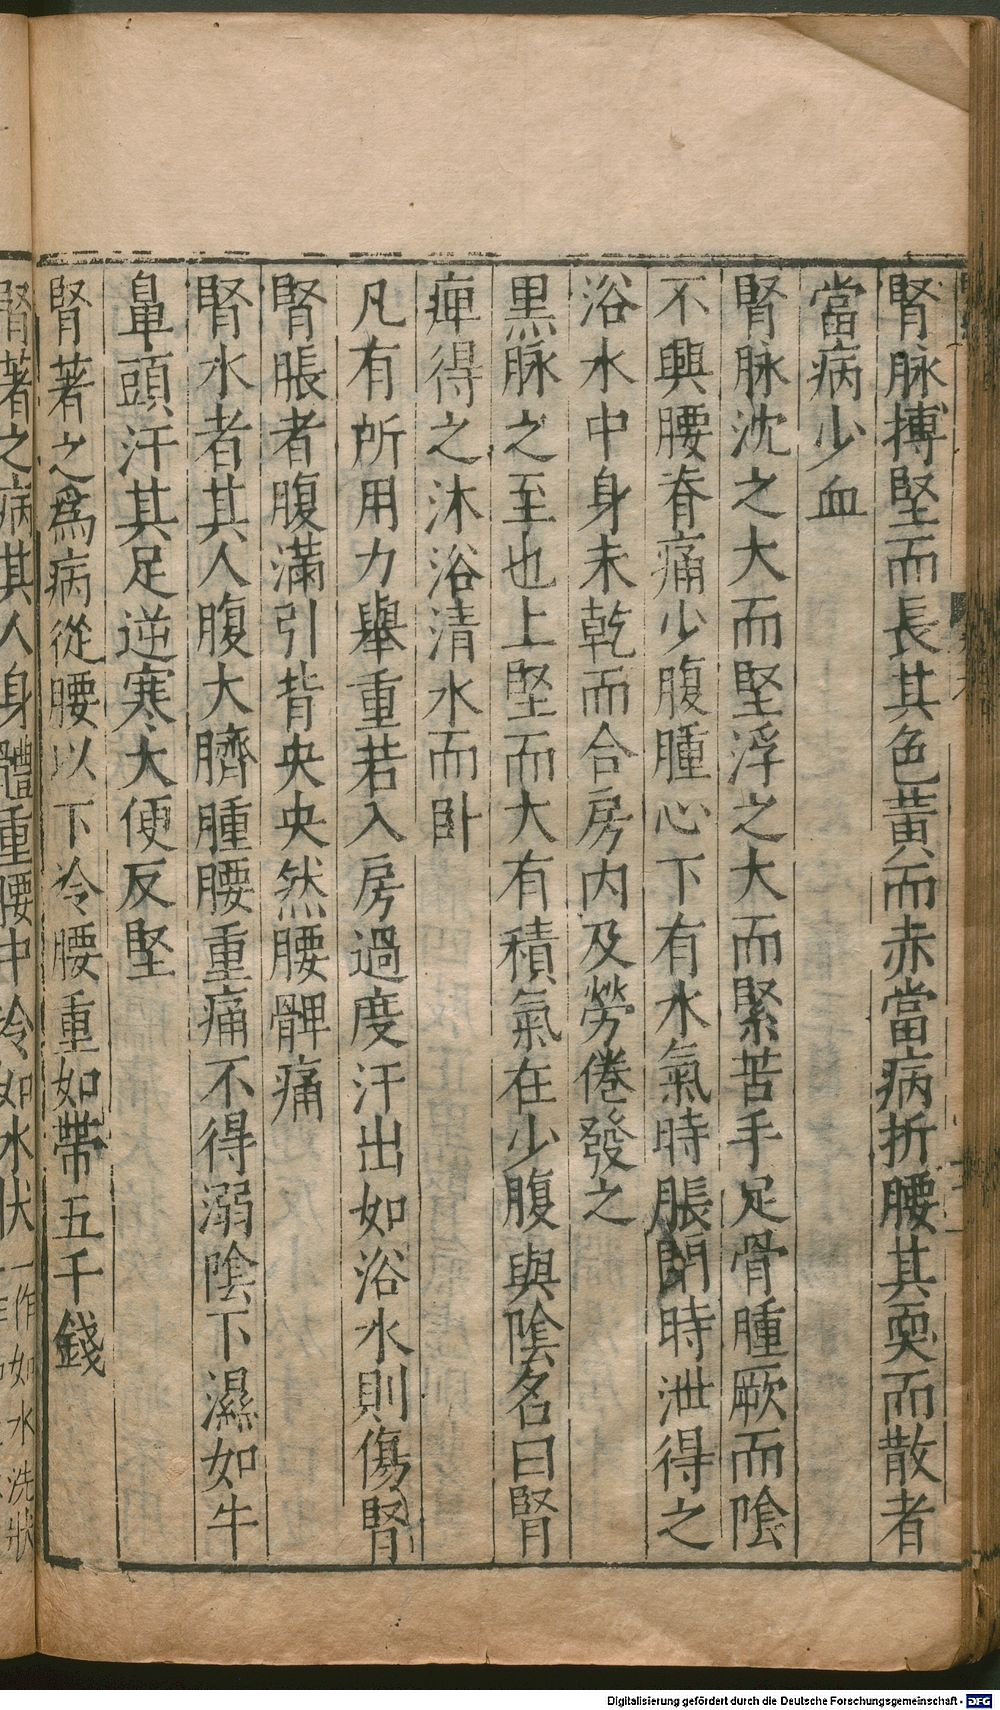 腎脉搏堅而長其色黃而赤當病折腰其耎而散者
當病少血
腎脉沈之大而堅浮之大而緊苦手足骨腫厥而陰
不興腰脊痛少腹腫心下有水氣時脹閉時泄得之
浴水中身未乾而合房內及勞倦發之
黑脉之至也上堅而大有積氣在少腹與陰名曰腎
痺得之沐浴清水而卧
凡有所用力舉重若入房過度汗出如浴水則傷腎
腎脹者腹滿引背央央然腰髀痛
腎水者其人腹大臍腫腰重痛不得溺陰下濕如牛
鼻頭汗其足逆寒大便反堅
腎著之爲病從腰以下冷腰重如帶五千錢
腎著之病其人身體重腰中冷如水狀一作如水洗狀
Digitalisierung gefördert durch die Deutsche Forschungsgemeinschaft - DFG